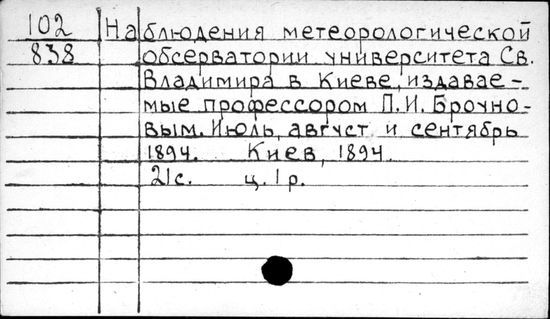 102 Наблюдения метеорологической
838 обсерватории университета Св.
Владимира в Киеве, издавае-
мые профессором П.И. Брочно-
вым. Июль, август и сентябрь
1894. Киев, 1894.
21с. ц. 1 р.